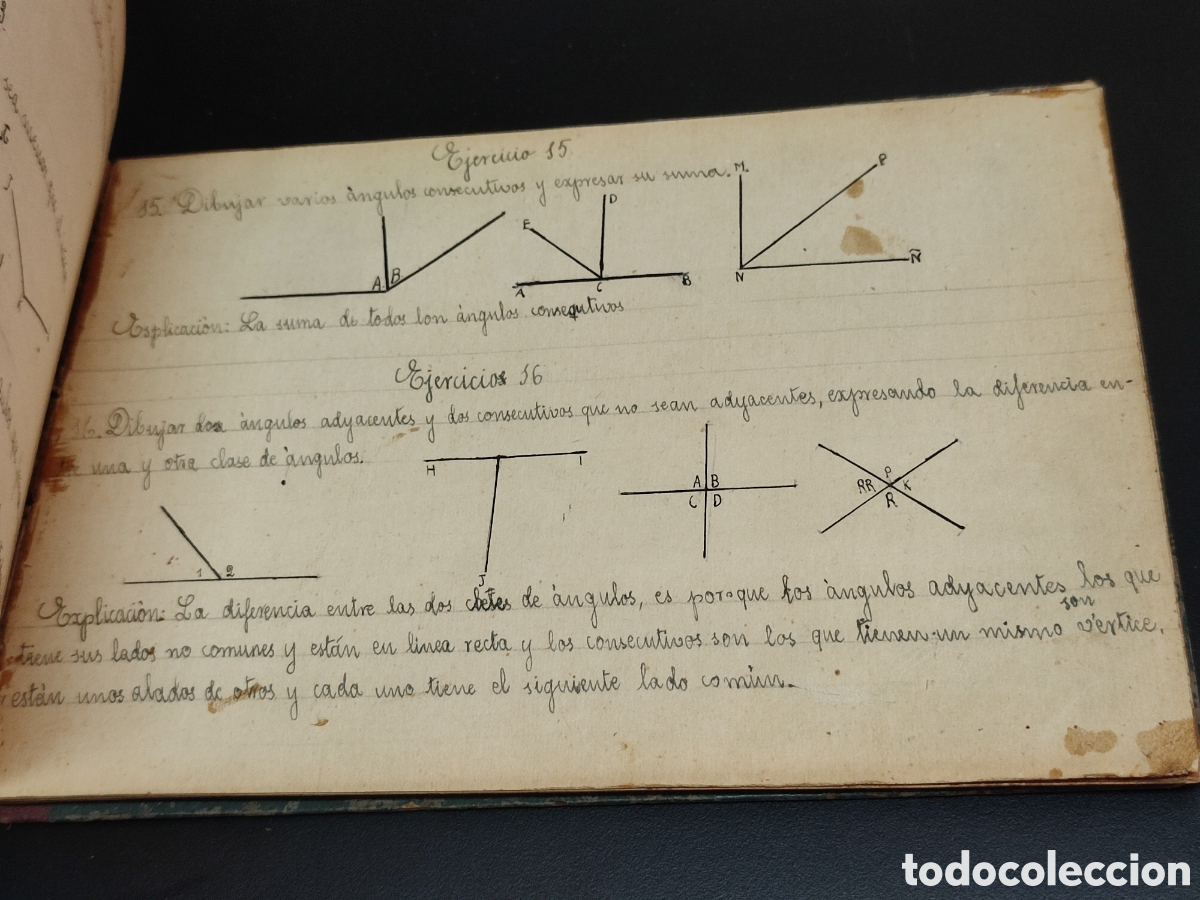 Ejercicio 15
15. Dibujar varios àngulos consecutivos y expresar su suma.
M. P
E D
A B
A C B
N Ñ
Esplicaciòn: La suma de todos lon àngulos consequtivos
Ejercicios 16
16. Dibujar dos àngulos adyacentes y dos consecutivos que no sean adyacentes, expresando la diferencia en-
una y otra clase de àngulos.
H I
A B
C D
P
RR K
R
1 2
J
Explicaciòn: La diferencia entre las dos de àngulos, es porque los àngulos adyacentes los que
tiene sus lados no comunes y estàn en linea recta y los consecutivos son los que tienen un mismo vèrtice,
son
estàn unos alados de otros y cada uno tiene el siguiente lado comùn.
todocoleccion